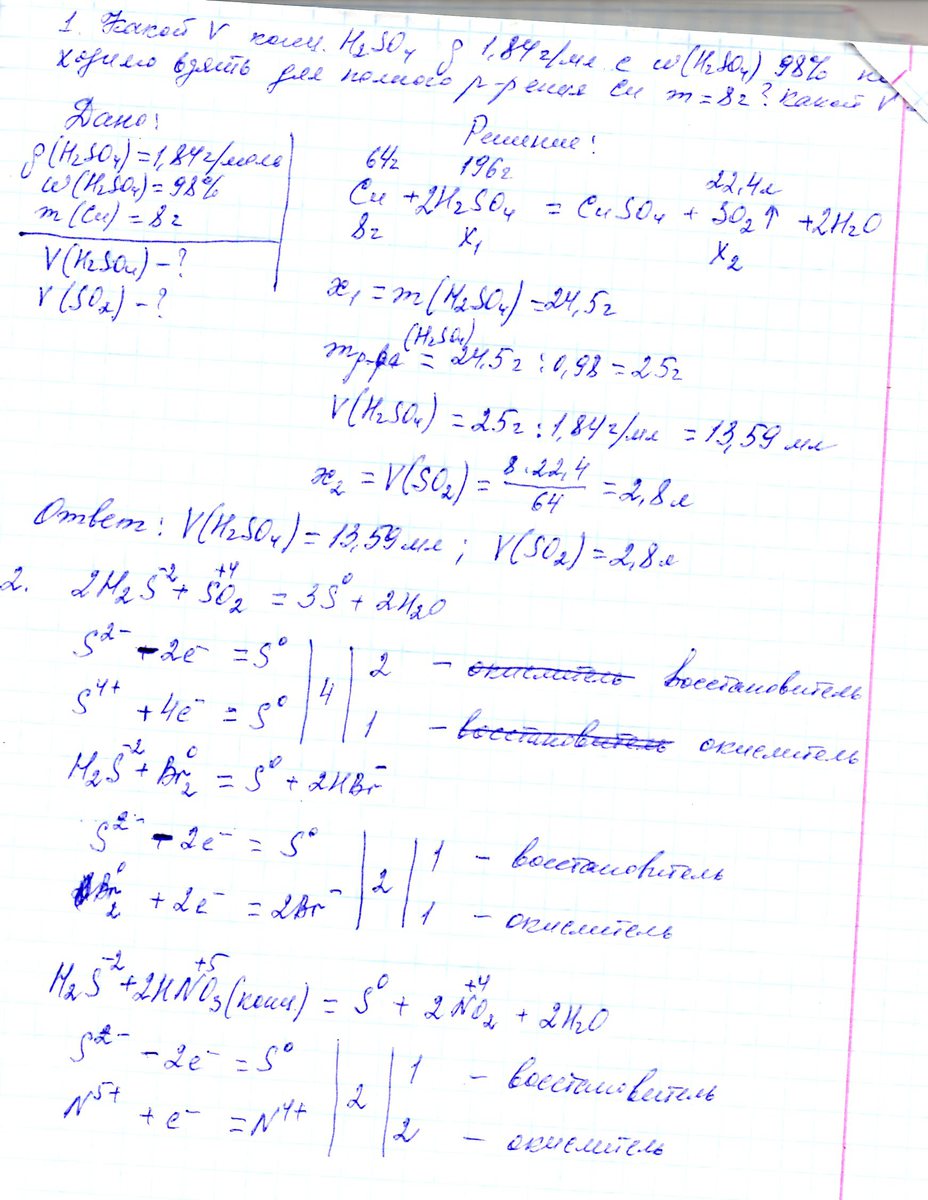 1. Какой V конц. H₂SO₄ ρ 1,84 г/мл с ω(H₂SO₄) 98% не
ходимо взять для полного р-рения Cu m = 8г? Какой V
Дано:
Решение:
ρ(H₂SO₄) = 1,84 г/моль
ω(H₂SO₄) = 98%
m(Cu) = 8г
V(H₂SO₄) - ?
V(SO₂) - ?
64г 196г 22,4л
Cu + 2H₂SO₄ = CuSO₄ + SO₂↑ + 2H₂O
8г x₁ x₂
x₁ = m(H₂SO₄) = 24,5г
m р-ра (H₂SO₄) = 24,5г : 0,98 = 25г
V(H₂SO₄) = 25г : 1,84 г/мл = 13,59 мл
x₂ = V(SO₂) = 8·22,4/64 = 2,8л
Ответ: V(H₂SO₄) = 13,59 мл; V(SO₂) = 2,8л
2. 2H₂S⁻² + S⁺⁴O₂ = 3S⁰ + 2H₂O
S²⁻ - 2e⁻ = S⁰ | 4 | 2 - окислитель восстановитель
S⁴⁺ + 4e⁻ = S⁰ | 1 - восстановитель окислитель
H₂S⁻² + Br₂⁰ = S⁰ + 2HBr⁻
S²⁻ - 2e⁻ = S⁰ | 2 | 1 - восстановитель
Br₂⁰ + 2e⁻ = 2Br⁻ | 1 - окислитель
H₂S⁻² + 2HN⁺⁵O₃(конц) = S⁰ + 2N⁺⁴O₂ + 2H₂O
S²⁻ - 2e⁻ = S⁰ | 2 | 1 - восстановитель
N⁵⁺ + e⁻ = N⁴⁺ | 2 - окислитель